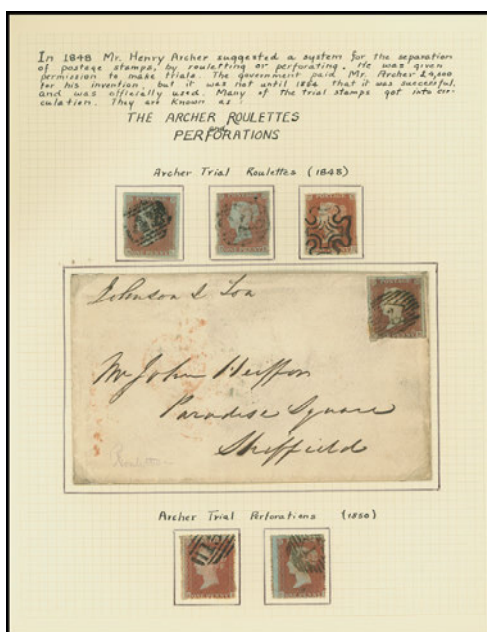 In 1848 Mr. Henry Archer suggested a system for the separation
of postage stamps, by rouletting or perforating. He was given
permission to make trials. The government paid Mr. Archer £4,000
for his invention, but it was not until 1854 that it was successful,
and was officially used. Many of the trial stamps got into cir-
culation. They are known as:
THE ARCHER ROULETTES
and
PERFORATIONS
Archer Trial Roulettes (1848)
POSTAGE
Johnson & Son
Mr John
Paradise Square
Sheffield
Roulette
Archer Trial Perforations (1850)